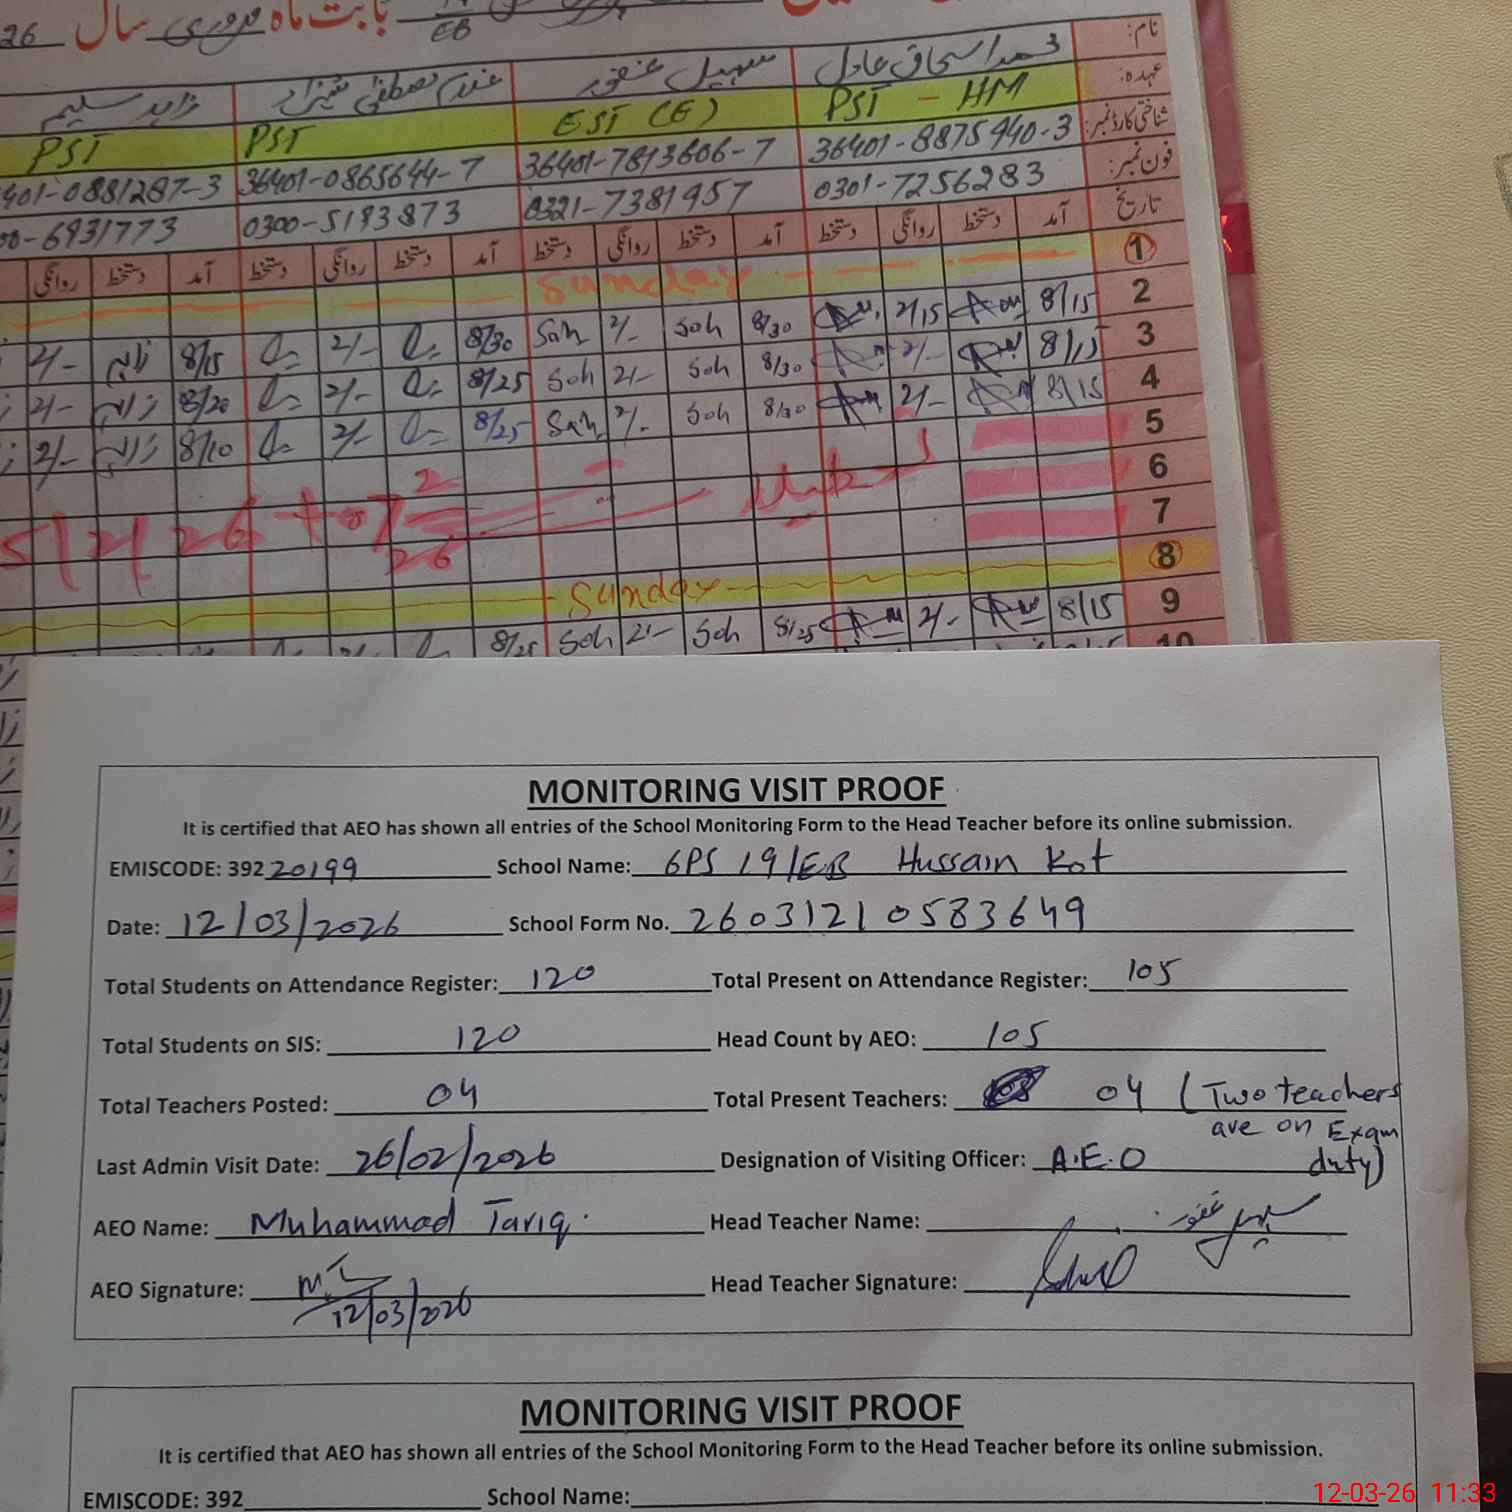 26 سال فروری بابت ماہ
EB
نام: محمد اسحاق عادل سہیل غفور غلام مصطفیٰ شہزاد زاہد سلیم
عہدہ: PST - HM EST (E) PST PST
شناختی کارڈ نمبر: 36401-8875940-3 36401-7813606-7 36401-0865644-7 401-0881287-3
فون نمبر: 0301-7256283 0321-7381957 0300-5193873 00-6931773
تاریخ آمد دستخط روانگی دستخط آمد دستخط روانگی دستخط آمد دستخط روانگی دستخط آمد دستخط روانگی
1 Sunday
2 8/15 2/15 8/30 Soh 2/- Soh 8/30 2/- 8/15 زاہد 2/-
3 8/15 2/- 8/30 Soh 2/- Soh 8/25 2/- 8/20 زاہد 2/-
4 8/15 2/- 8/30 Soh 2/- Soh 8/25 2/- 8/10 زاہد 2/-
5
6
5/2/26 + 07 2 26
7
8 Sunday
9 8/15 2/- 8/25 Soh 2/- Soh 8/25
10
MONITORING VISIT PROOF
It is certified that AEO has shown all entries of the School Monitoring Form to the Head Teacher before its online submission.
EMISCODE: 39220199 School Name: GPS 19/EB Hussain Kot
Date: 12/03/2026 School Form No. 26031210583649
Total Students on Attendance Register: 120 Total Present on Attendance Register: 105
Total Students on SIS: 120 Head Count by AEO: 105
Total Teachers Posted: 04 Total Present Teachers: 04 (Two teachers
are on Exam
Last Admin Visit Date: 26/02/2026 Designation of Visiting Officer: A.E.O duty)
AEO Name: Muhammad Tariq. Head Teacher Name: سہیل غفور
AEO Signature: Head Teacher Signature:
12/03/2026
MONITORING VISIT PROOF
It is certified that AEO has shown all entries of the School Monitoring Form to the Head Teacher before its online submission.
EMISCODE: 392 School Name:
12-03-26 11:33